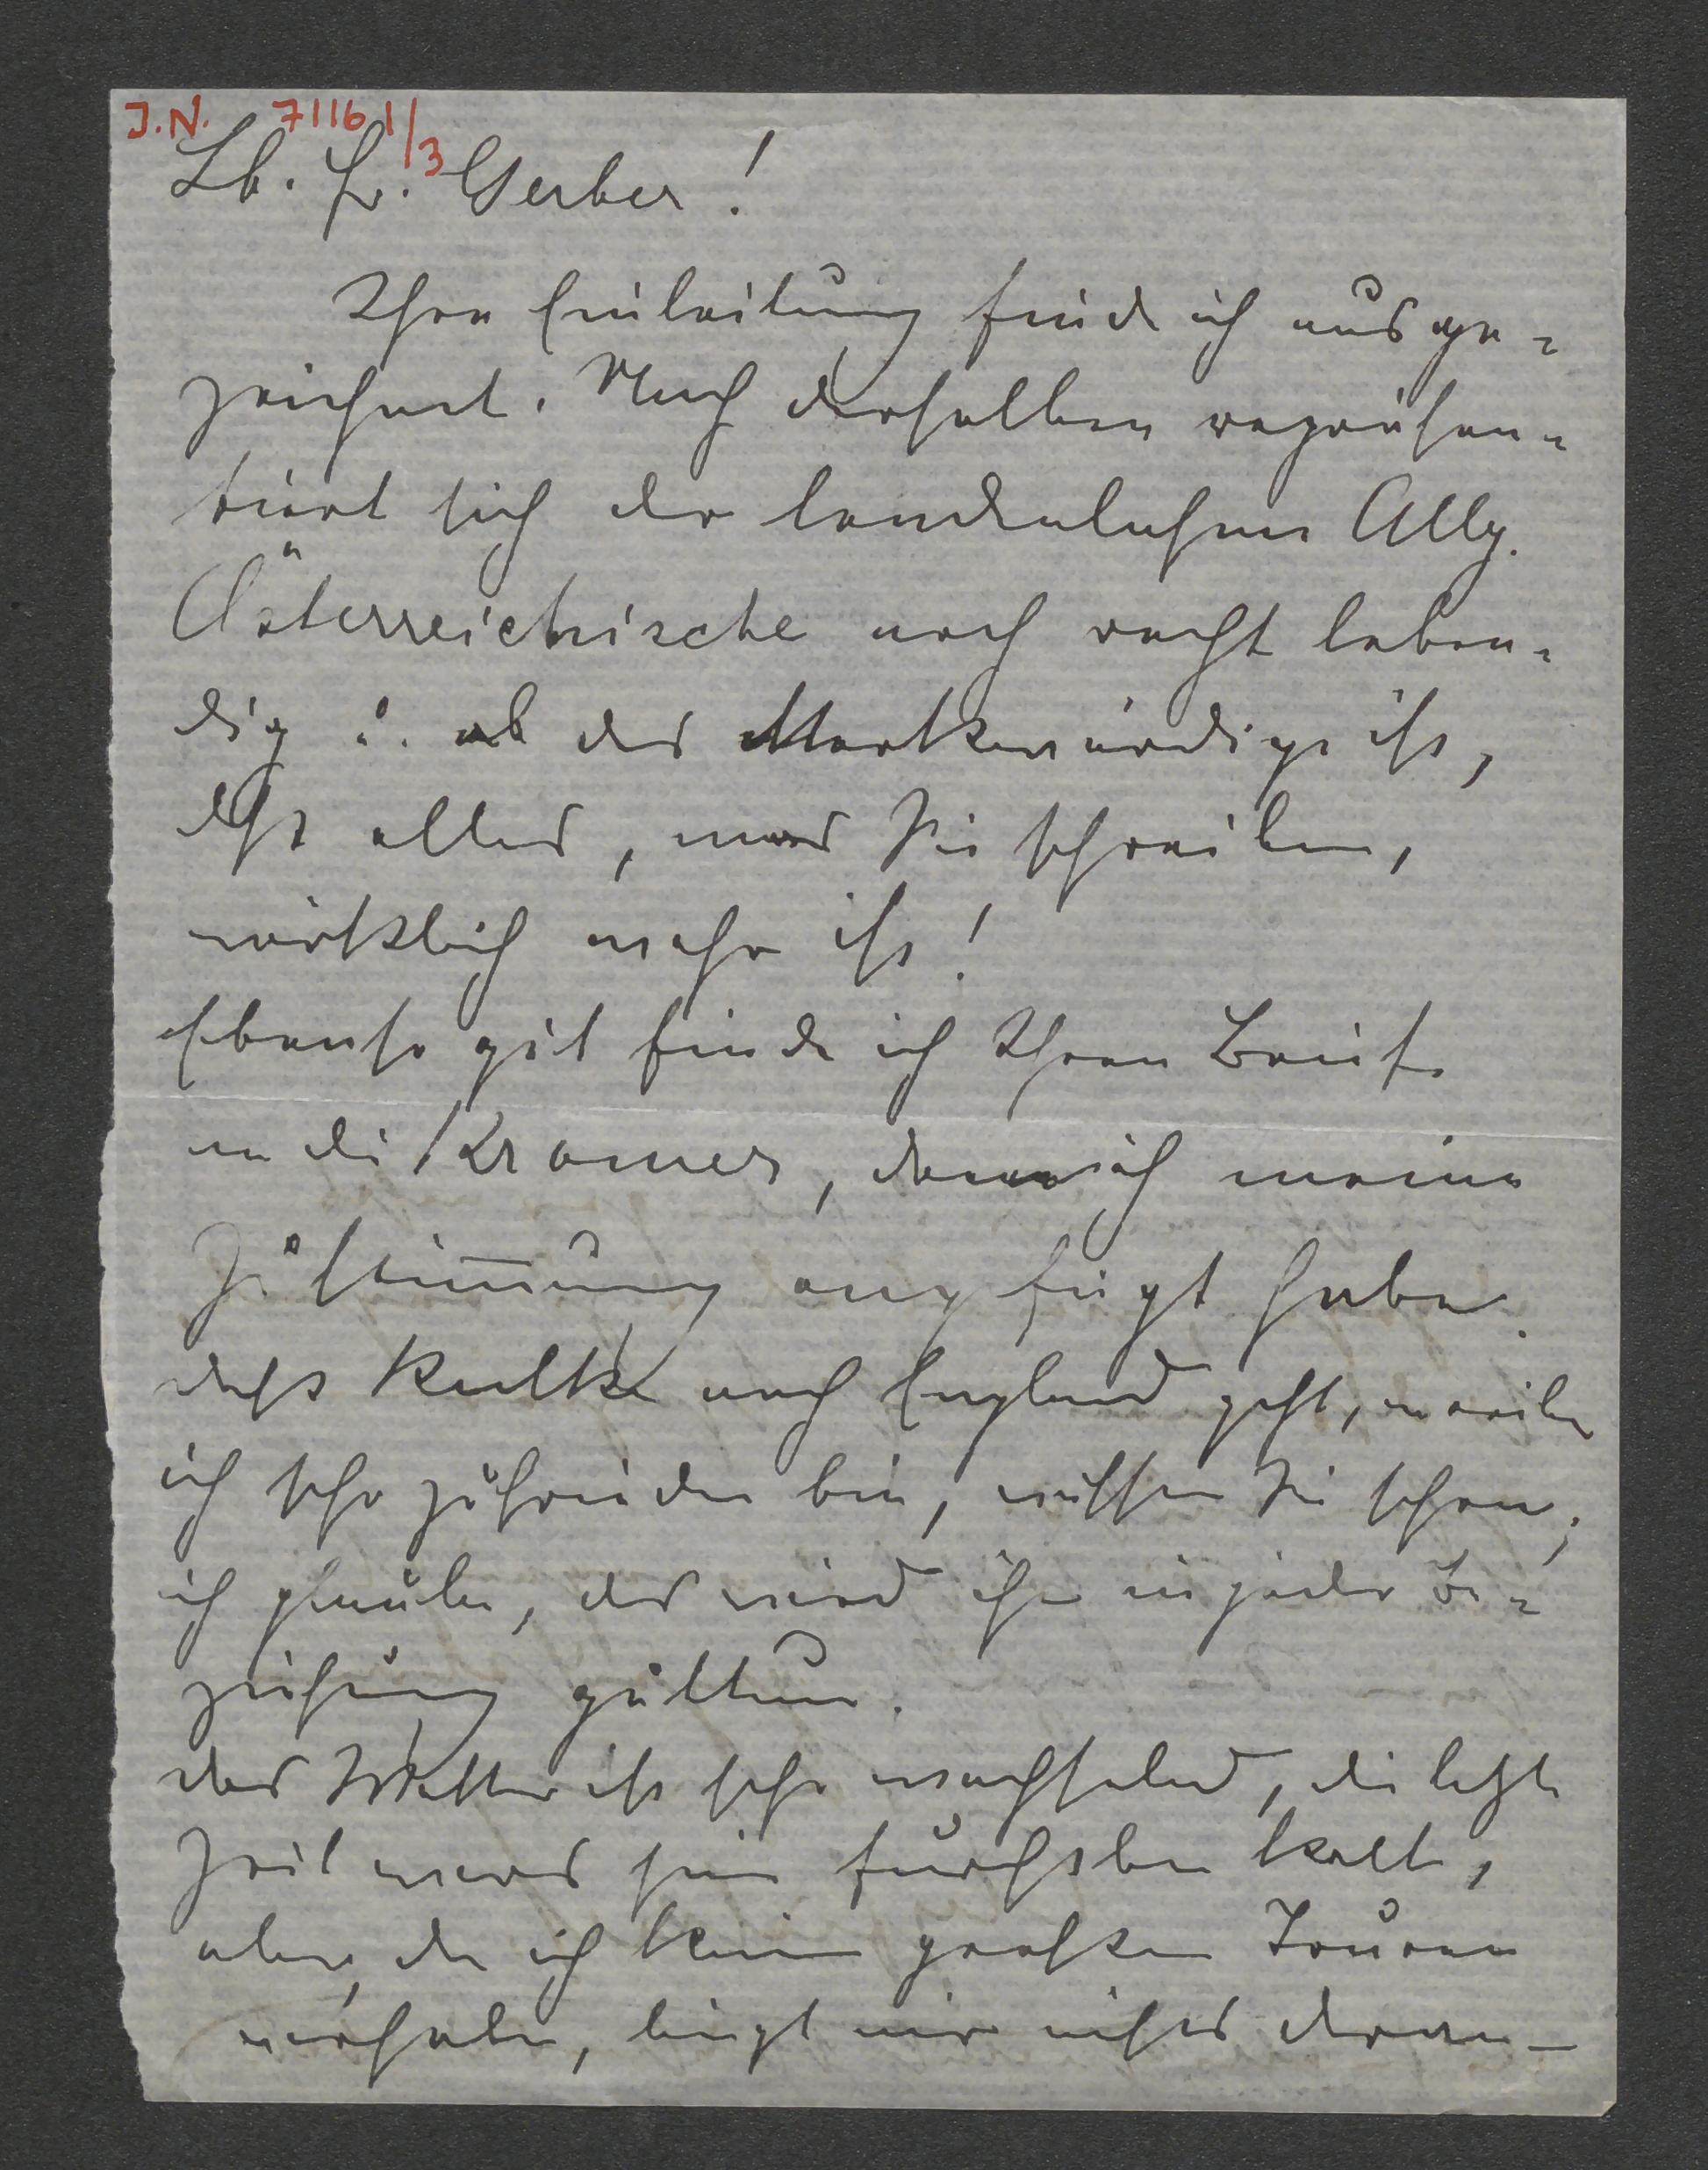 J.N. 71161/3
Lb. Fr. Gerber!
Ihre Einleitung finde ich ausge-
zeichnet. Nach derselben repräsen-
tiert sich der Allg.
Österreichische noch recht leben-
dig u. das Merkwürdige ist,
dß alles, was Sie schreiben,
wirklich wahr ist!
Ebenso gut finde ich Ihren Brief
an die Kramer, dem ich meine
Zustim̅ung angefügt habe.
dass Kulka nach England geht, worüber
ich sehr zufrieden bin, wissen Sie schon;
ich glaube, das wird ihr in jeder Be-
ziehung guttun.
das Wetter ist sehr wechselnd, die letzte
Zeit war's hier furchtbar kalt,
aber, da ich keine großen Touren
vorhabe, liegt mir nichts daran –